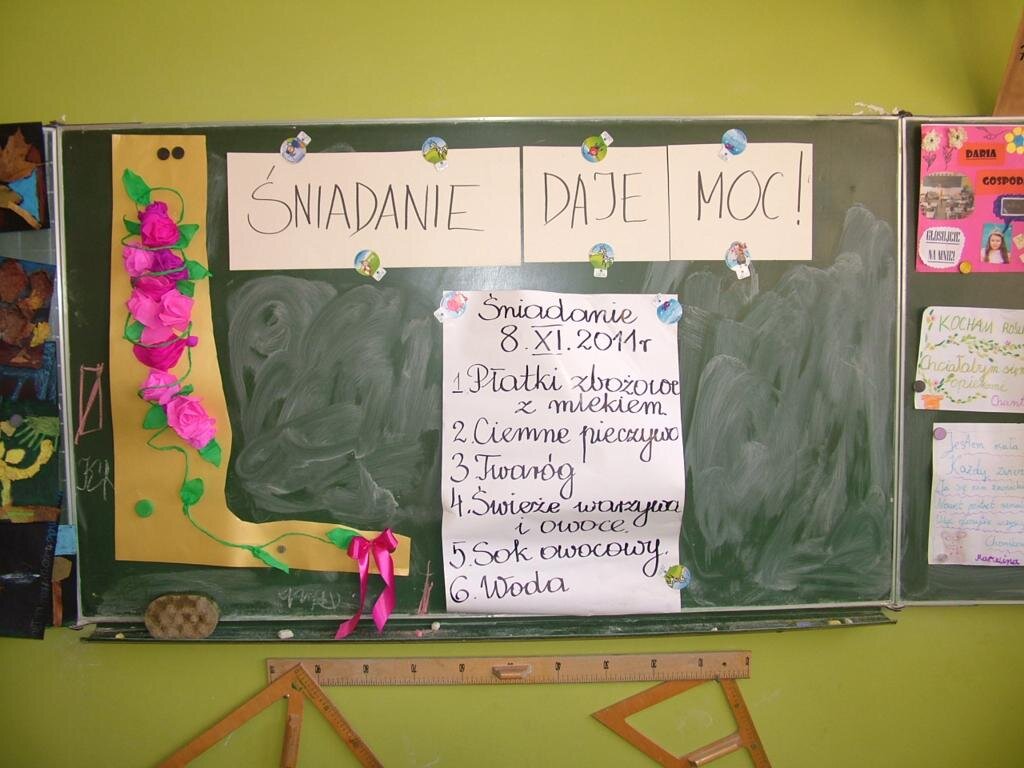 ŚNIADANIE DAJE MOC!
Śniadanie
8.XI.2011r
1 Płatki zbożowe
z mlekiem
2. Ciemne pieczywo
3 Twaróg
4. Świeże warzywa
i owoce.
5. Sok owocowy.
6. Woda
DARIA
GOSPODA
GŁOSUJCIE
NA MNIE!
KOCHAM
Chciałabym się
Jestem mała
Każdy